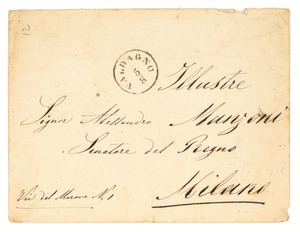 Illustre
VALDAGNO
Signor Alessandro Manzoni
Senatore del Regno
Milano
Via del Morone N. 1